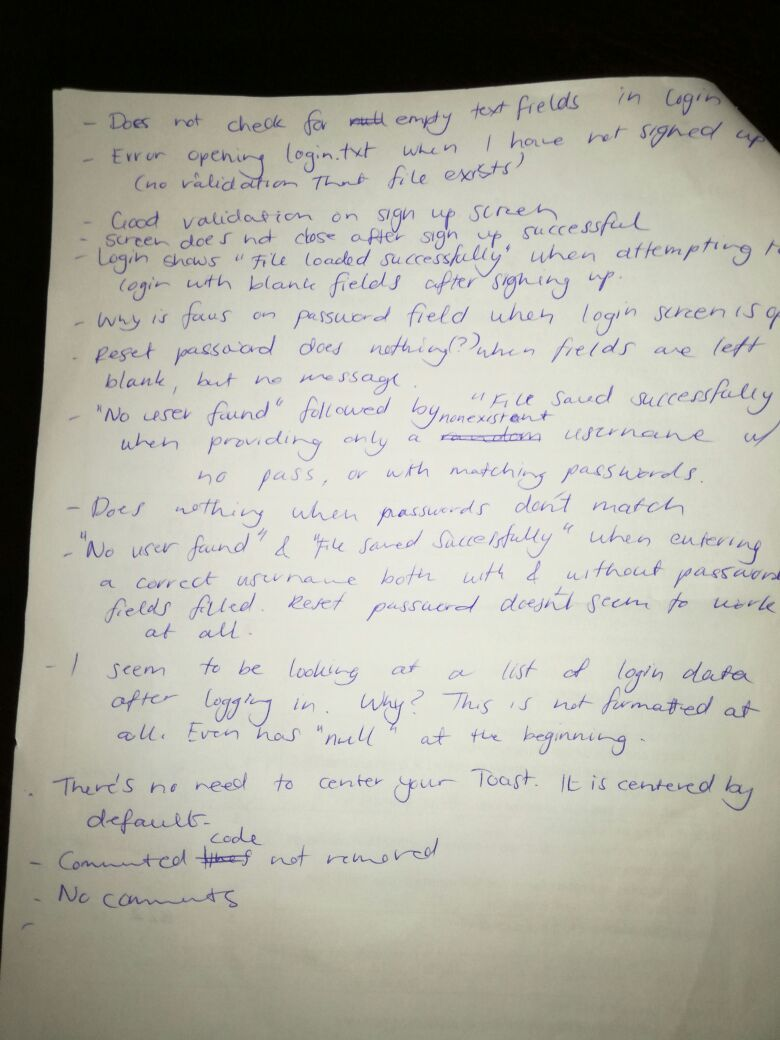 - Does not check for null empty text fields in login
- Error opening login.txt when I have not signed up
(no validation that file exists)
- Good validation on sign up screen
- Screen does not close after sign up successful
- Login shows "File loaded successfully" when attempting to
login with blank fields after signing up.
- Why is focus on password field when login screen is op
- Reset password does nothing(?) when fields are left
blank, but no message.
- "No user found" followed by "File saved successfully
when providing only a nonexistent username w/
no pass, or with matching passwords.
- Does nothing when passwords don't match
- "No user found" & "File saved successfully" when entering
a correct username both with & without password
fields filled. Reset password doesn't seem to work
at all.
- I seem to be looking at a list of login data
after logging in. Why? This is not formatted at
all. Even has "null" at the beginning.
. There's no need to center your Toast. It is centered by
default.
- Commented code not removed
- No comments
-